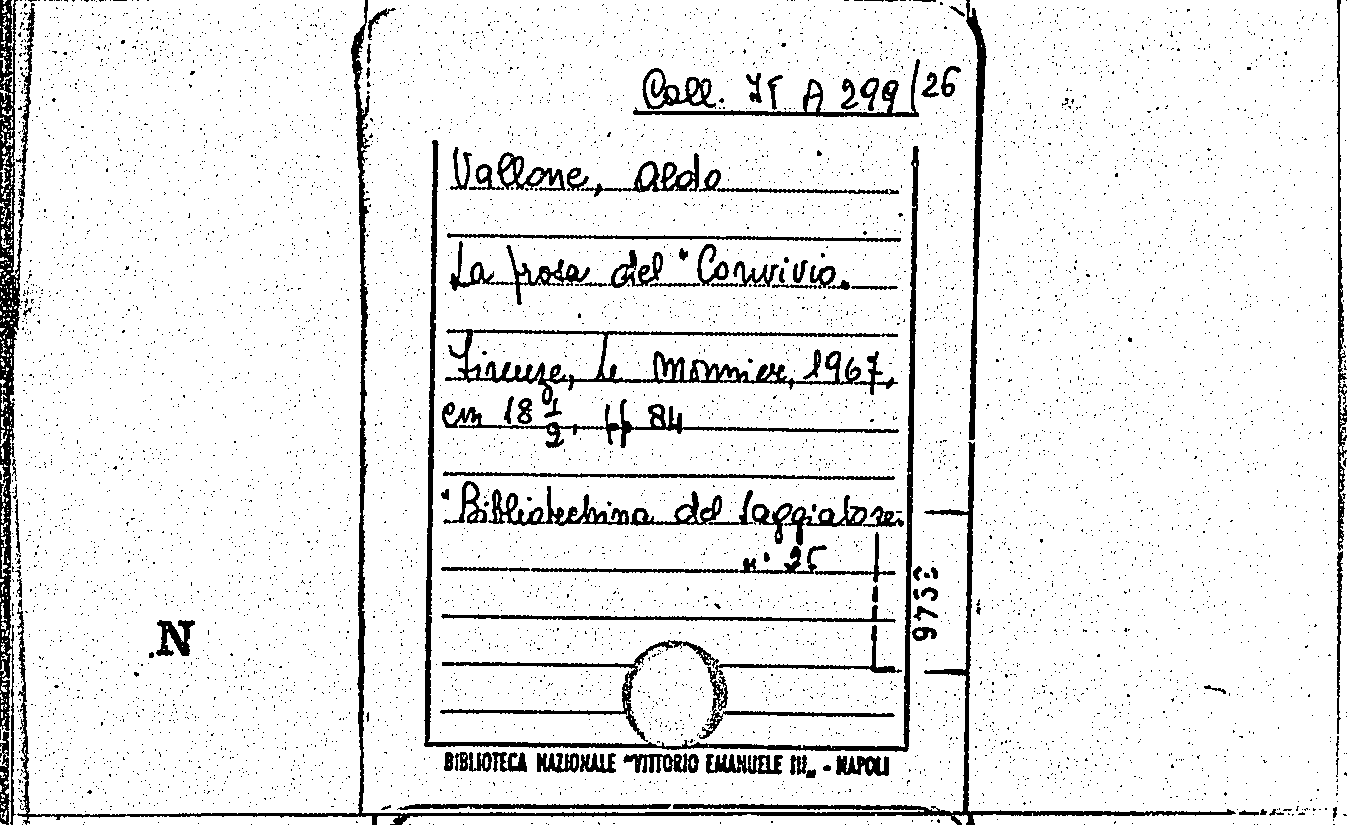 Coll. 7F A 299/26
Vallone, Aldo
La prosa del "Convivio.
Firenze, Le Monnier, 1967,
cm 18 1/2, pp 84
"Bibliotechina del Saggiatore.
n. 25
9752
N
BIBLIOTECA NAZIONALE "VITTORIO EMANUELE III„ - NAPOLI